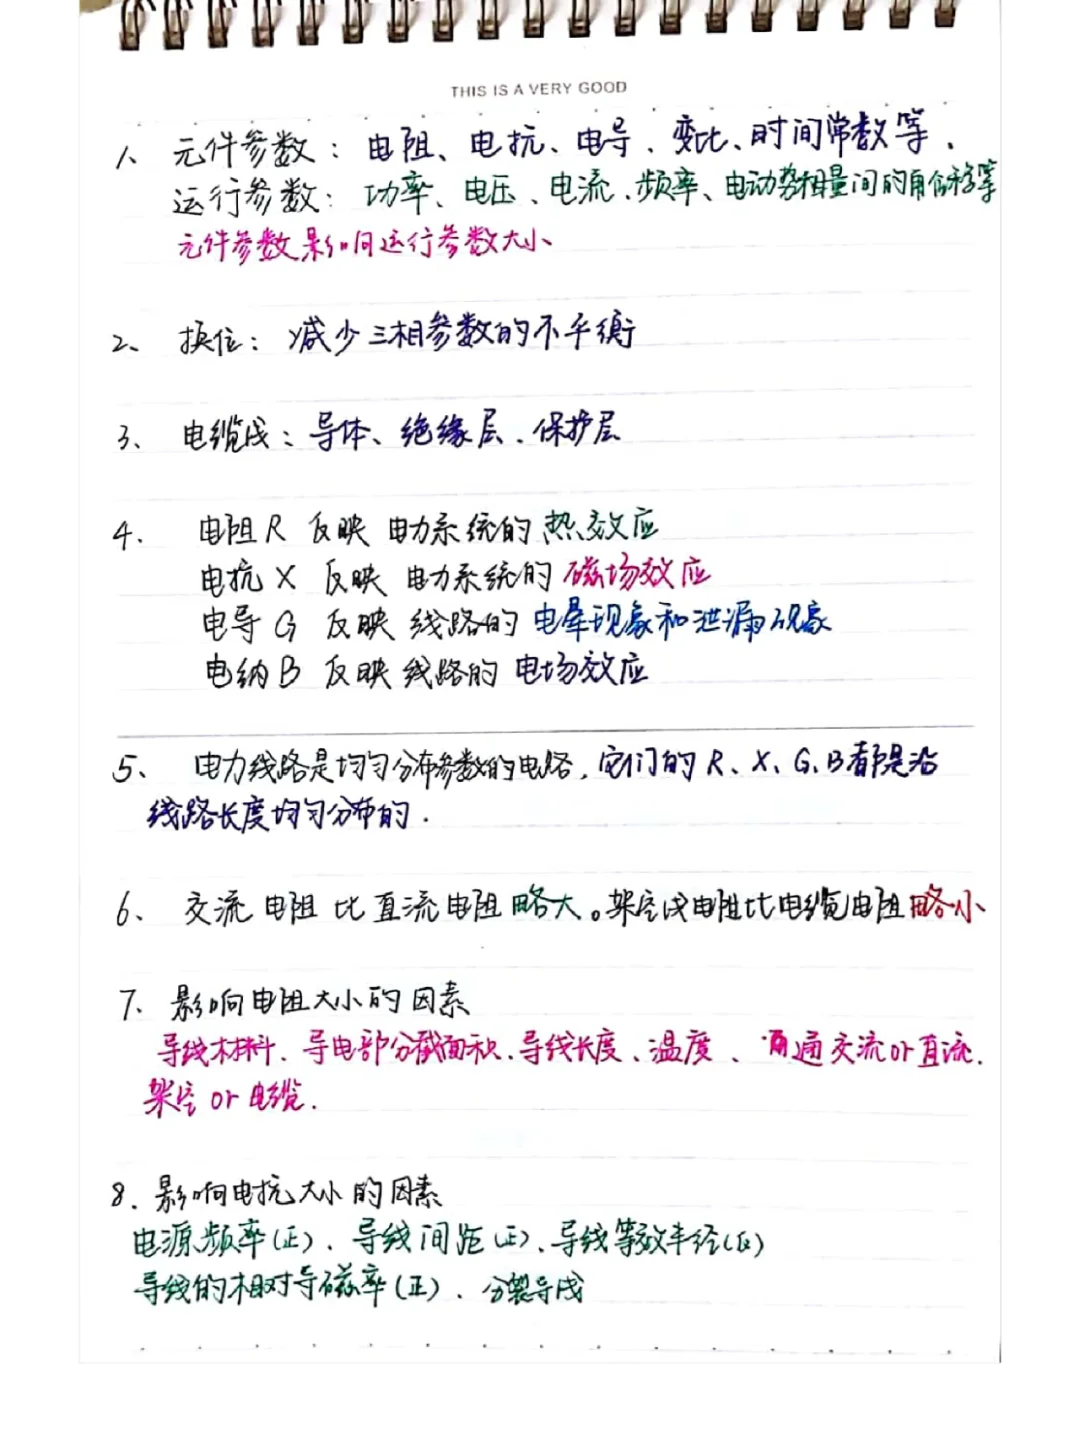 THIS IS A VERY GOOD
1、元件参数：电阻、电抗、电导、变比、时间常数等．
运行参数：功率、电压、电流、频率、电动势相量间的角位移等
元件参数影响运行参数大小
2、换位：减少三相参数的不平衡
3、电缆线：导体、绝缘层、保护层
4．电阻R 反映 电力系统的热效应
电抗X 反映 电力系统的磁场效应
电导G 反映 线路的 电晕现象和泄漏现象
电纳B 反映 线路的 电场效应
5、电力线路是均匀分布参数的电路，它们的R、X、G、B都是沿
线路长度均匀分布的．
6、交流电阻 比 直流电阻 略大。架空线电阻比电缆电阻略小
7、影响电阻大小的因素
导线材料、导电部分截面积、导线长度、温度、通交流or直流．
架空or电缆．
8．影响电抗大小的因素
电源频率(正)、导线间距(正)、导线等效半径(反)
导线的相对导磁率(正)、分裂导线